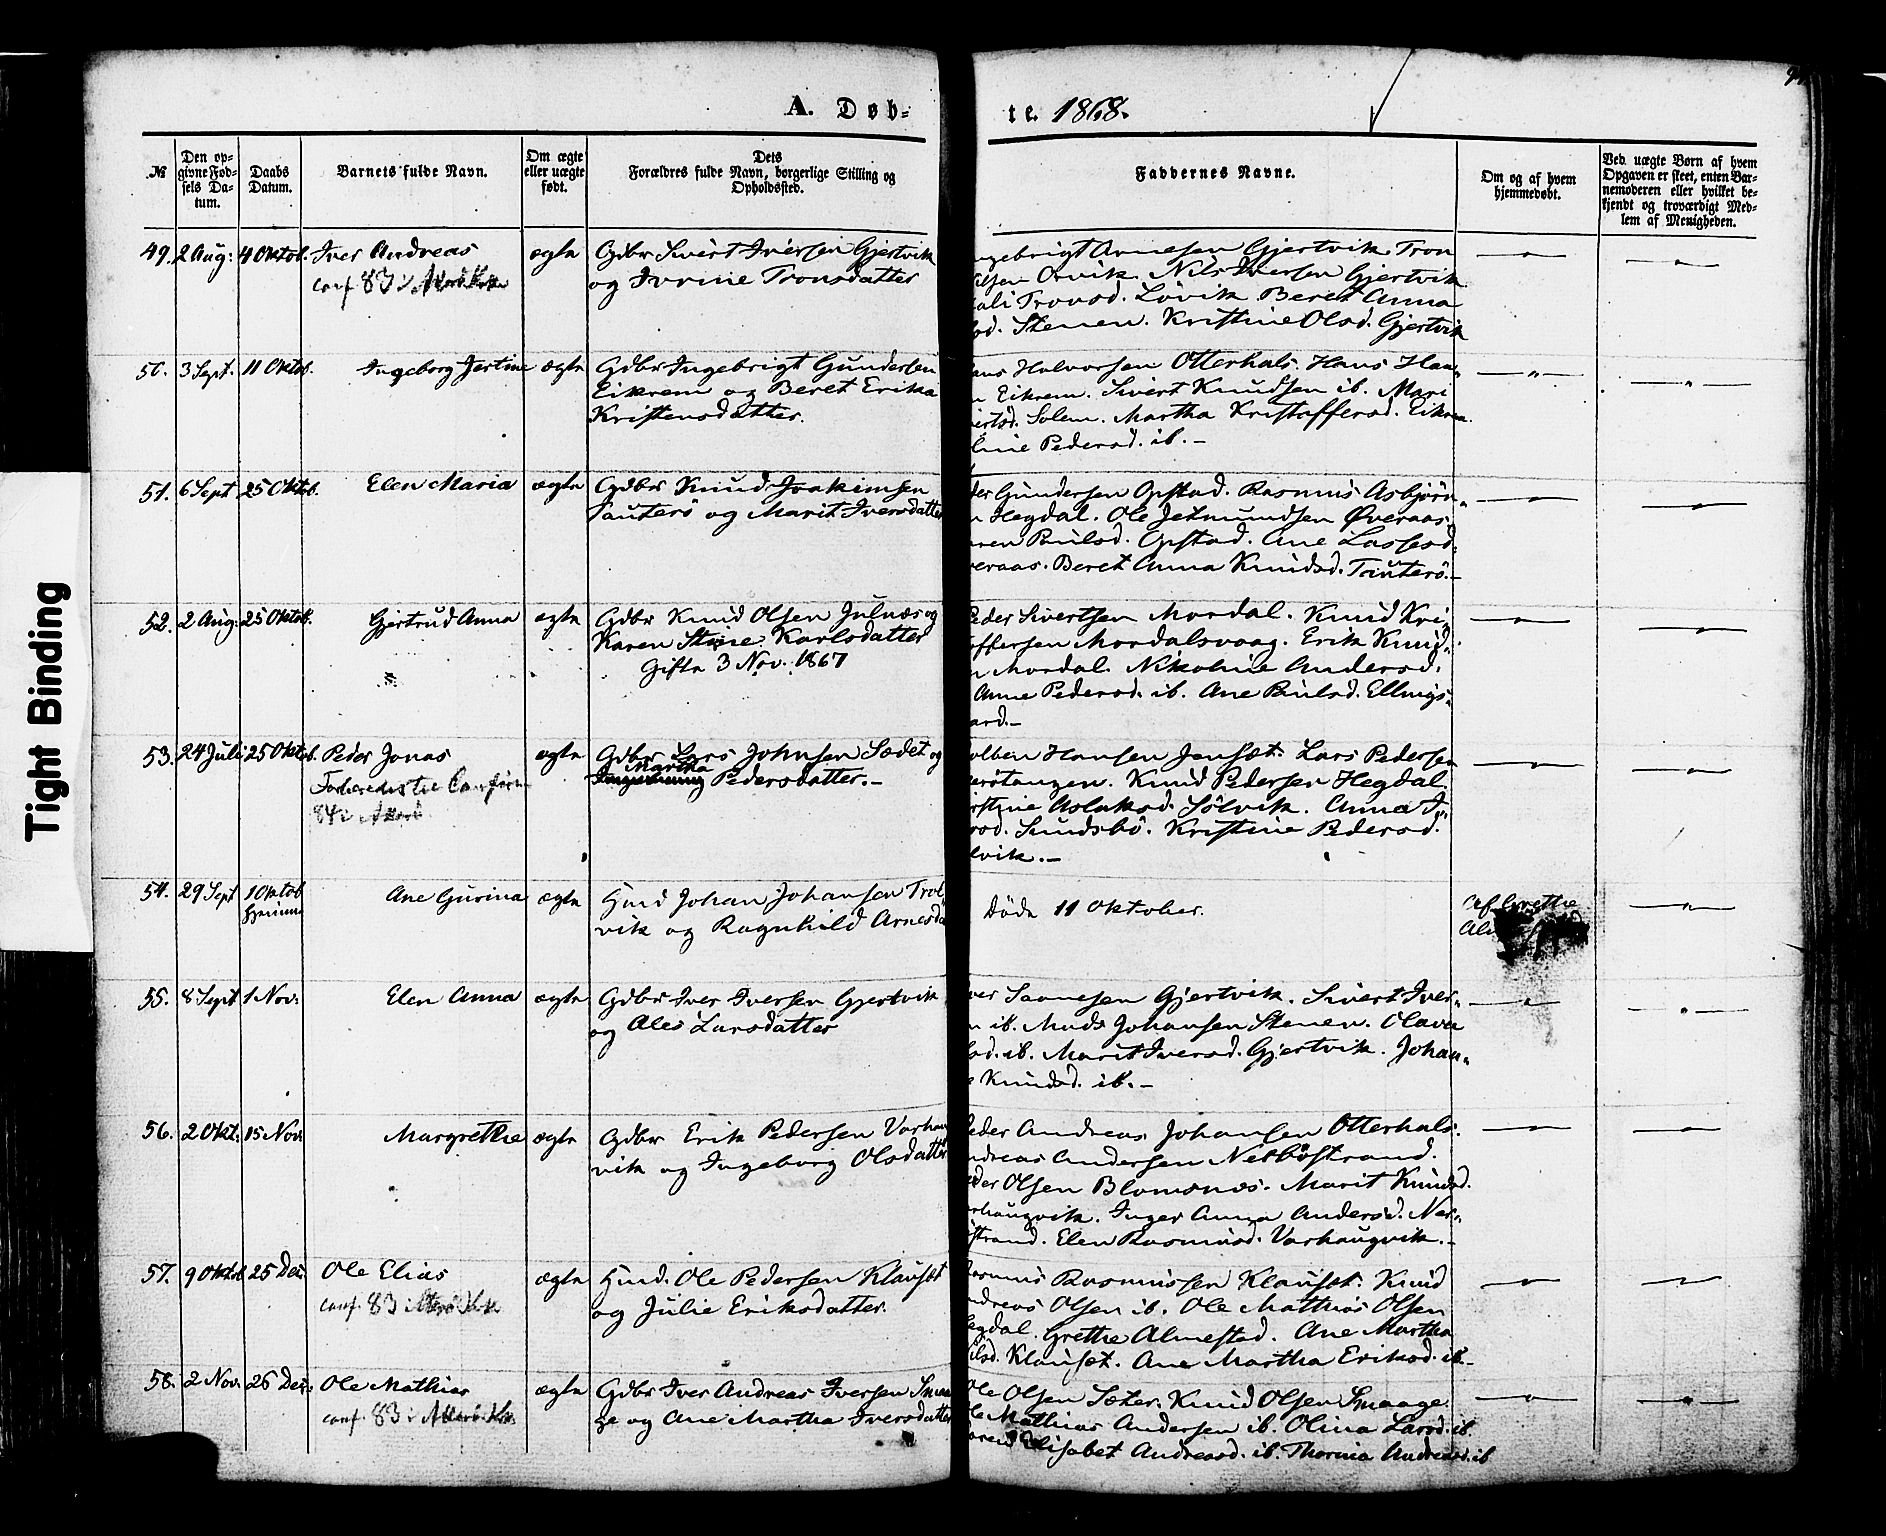 A. Døb-
te. 1868.
№
Den op-
givne Fød-
sels Da-
tum.
Daabs
Datum.
Barnets fulde Navn.
Om ægte
eller uægte
født.
Dets
Forældres fulde Navn, borgerlige Stilling og
Opholdssted.
Faddernes Navne.
Om og af hvem
hjemmedøbt.
Ved uægte Børn af hvem
Opgaven er skeet, enten Bar-
nemoderen eller hvilket be-
kjendt og troværdigt Med-
lem af Menigheden.
49. 2 Aug: 4 Oktob. Iver Andreas ægte Gdbr Sivert Iversen Gjertvik
conf. 83 i
og Tronsdatter
Arnesen Gjertvik. Tron
Orvik. Nils Iversen Gjertvik
Tronsd. Løvik. Beret Anna
Stenen. Kristine Olsd. Gjertvik
50. 3 Sept. 11 Oktob. Ingeborg Jertine ægte Gdbr Ingebrigt Gundersen
Eikrem og Beret Erika
Kristensdatter.
Halvorsen Otterhals. Hans Han-
Eikrem. Sivert Knudsen ib. Mari
Solem. Martha Kristoffersd. Eikrem
Pedersd. ib. —
51. 6 Sept 25 Oktob. Elen Maria ægte Gdbr Knud Joakimsen
Tauterø og Marit Iversdatter
Gundersen Opstad. Rasmus Asbjørn-
Hegdal. Ole Jetmundsen Øveraas,
Paulsd. Opstad. Ane Lassesd.
Beret Anna Knudsd. Tauterø. —
52. 2 Aug: 25 Oktob. Gjertrud Anna ægte Gdbr Knud Olsen Julnæs og
Karen Stine Karlsdatter
Gifte 3 Nov. 1867
Peder Sivertsen Mordal. Knud Kri-
Mordalsvaag. Erik Knud-
Mordal. Nikoline Andersd.
Anne Pedersd. ib. Ane Paulsd. Ellings-
53. 24 Juli 25 Oktob. Peder Jonas ægte Gdbr Lars Johnsen Sædet og
84 i
Martha
Pedersdatter. —
Hansen Jensæt. Lars Pedersen
Knud Pedersen Hegdal.
Aslaksd. Sølvik. Anna I-
Sundsbø. Kristine Pedersd.
54. 29 Sept 1 Oktob Ane Gurina ægte Hmd Johan Johansen Trol-
hjemme
vik og Ragnhild Arnesda
Døde 11 Oktober.
Af Grethe
55. 8 Sept 1 Nov: Elen Anna ægte Gdbr Iver Iversen Gjertvik
og Ales Larsdatter
Gjertvik. Sivert Iver-
ib. Mads Johansen Stenen. Olava
ib. Marit Iversd. Gjertvik. Johan-
Knudsd. ib. —
56. 2 Okt: 15 Nov: Margrethe ægte Gdbr Erik Pedersen Varhau
vik og Ingeborg Olsdatter
Peder Andreas Johansen Otterhals.
Andersen Nerbøstrand.
Olsen Blomsnæs. Marit Knudsd.
Inger Anna Andersd. Ner-
Elen Rasmusd. Varhaugvik. —
57. 9 Oktob 25 Dec: Ole Elias ægte Hmd. Ole Pedersen Klauset
conf. 83 i
og Julie Eriksdatter.
Rasmus Rasmussen Klauset. Knud
Andreas Olsen ib. Ole Mathias Olsen
Hegdal. Grethe Almestad. Ane Martha
Klauset. Ane Martha Eriksd. ib. —
58. 2 Nov: 26 Dec: Ole Mathias ægte Gdbr Iver Andreas Iversen Smaa
conf. 83 i
ge og Ane Martha Iversdatter
Ole Olsen Sæter. Knud Olsen Smaage.
Mathias Andersen ib. Olina Larsd. ib.
Elisabet Andreasd. ib. Thorina Andreasd. ib
Tight Binding